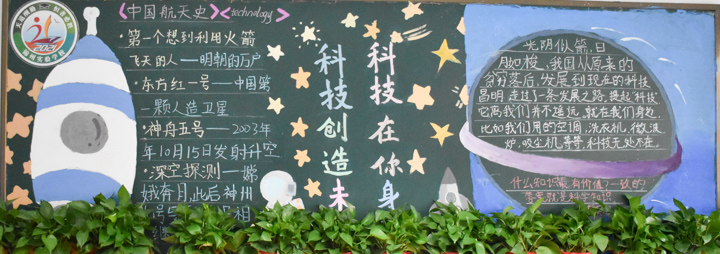 《中国航天史》《technology》
·第一个想到利用火箭
飞天的人——明朝的万户
·东方红一号——中国第
一颗人造卫星
·神舟五号——2003年
年10月15日发射升空
·深空探测——嫦
娥奔月,此后神州
科技创造未
科技在你身
光阴似箭,日
月如梭,我国从原来的
贫穷落后,发展到现在的科技
昌明,走过了一条发展之路,提起“科技”
它离我们并不遥远,就在我们身边,
比如我们用的空调、洗衣机、微波
炉、吸尘机等等,科技无处不在。
什么知识最有价值?一致的
答案就是科学知识